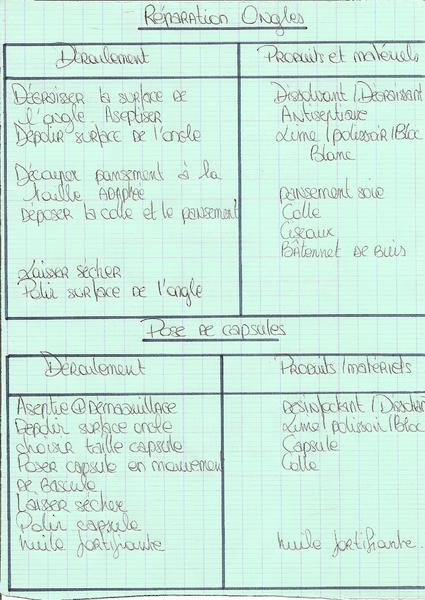 Réparation Ongles
Déroulement
Produits et matériels
Dégraisser la surface de
l'ongle Aseptiser
Dépolir surface de l'ongle
Découper pansement à la
taille ADAPtée
Deposer la colle et le pansement
Laisser sécher
Polir surface de l'ongle
Dissolvant / Dégraissant
Antiseptique
Lime / polissoir / Bloc
Blanc
pansement soie
Colle
Ciseaux
Bâtennet de Buis
Pose de capsules
Déroulement
Produits / matériels
Aseptie @ Démaquillage
Depolir surface ongle
choisir taille capsule
Poser capsule en mouvement
de Bascule
Laisser sécher
Polir capsule
huile fortifiante
Desinfectant / Dissolvan
Lime / polissoir / Bloc
Capsule
Colle
huile fortifiante.